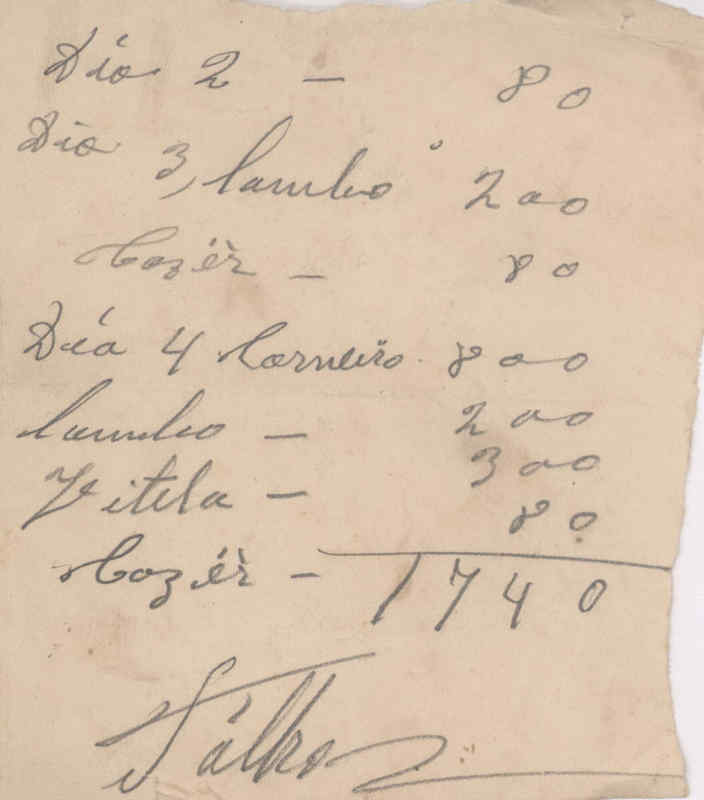 Día 2 — 80
Dia 3, lombo 200
Cozér — 80
Día 4 Carneiro 800
lombo — 200
Vitela — 300
Cozér — 80
1740